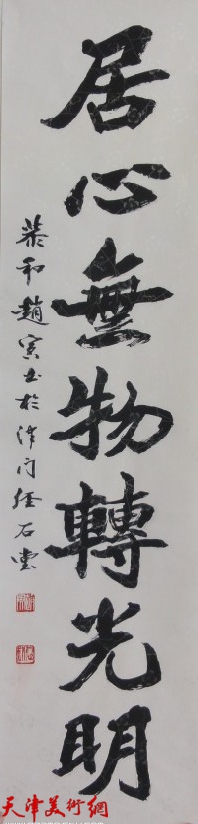 居心無物轉光明
恭和趙寅書於津門經石堂
天津美術網